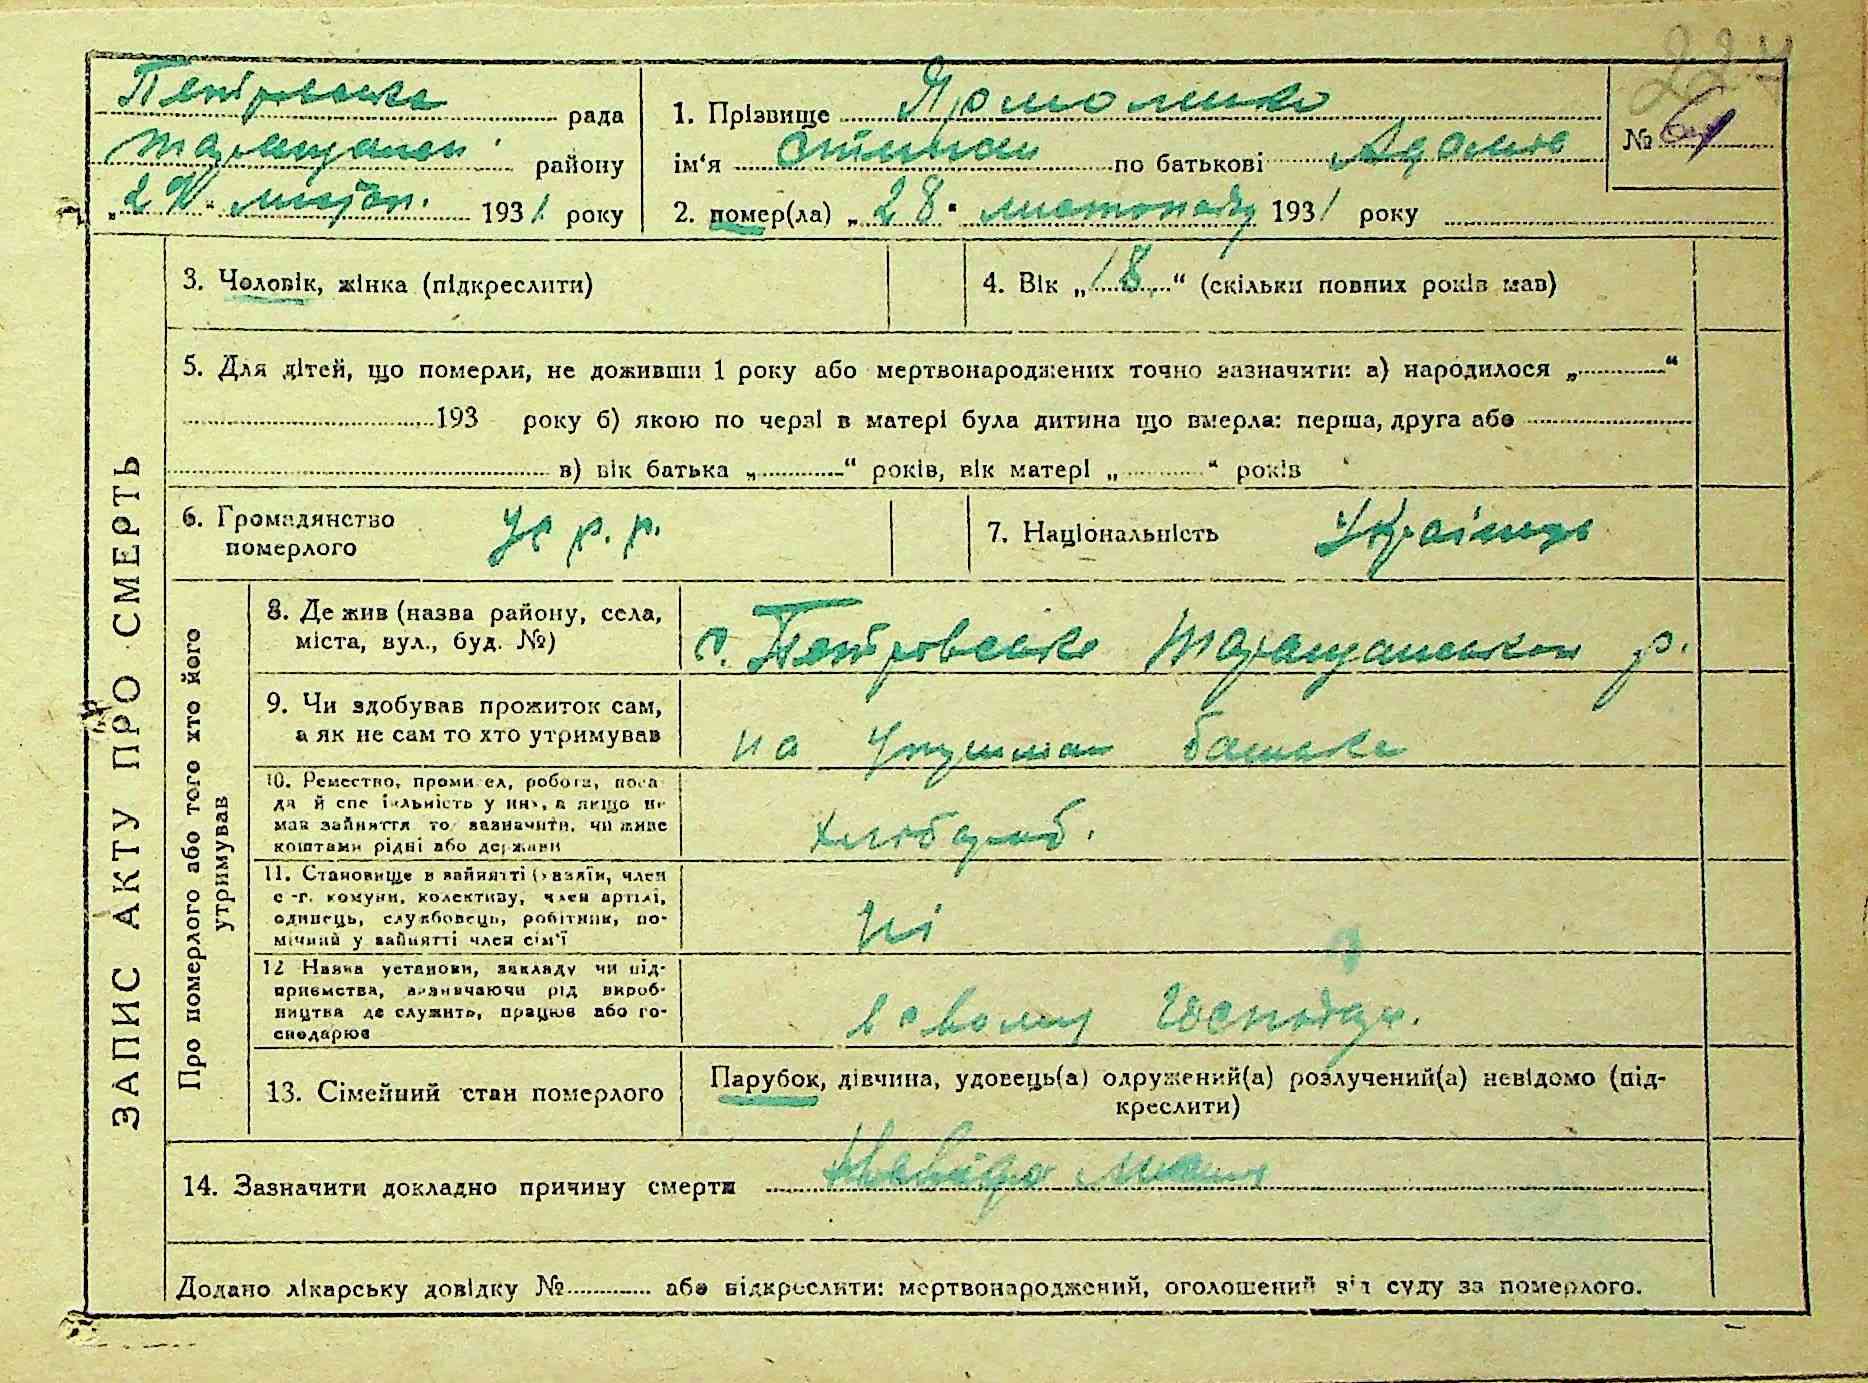 Петрівська рада
району
193 1 року
1. Прізвище Ярмоленко
ім'я Степан по батькові
2. помер(ла) „28" листопаду 1931 року
№ 61
224
ЗАПИС АКТУ ПРО СМЕРТЬ
3. Чоловік, жінка (підкреслити)
4. Вік „18" (скільки повних років мав)
5. Для дітей, що померли, не доживши 1 року або мертвонароджених точно зазначити: а) народилося „ "
193 року б) якою по черзі в матері була дитина що вмерла: перша, друга або
в) вік батька „ " років, вік матері „ " років
6. Громадянство
померлого
УС Р. Р.
7. Національність Українець
Про померлого або того хто його
утримував
8. Де жив (назва району, села,
міста, вул., буд. №)
с. Петрівське Таращанського р.
9. Чи здобував прожиток сам,
а як не сам то хто утримував
на батька
10. Ремество, промисел, робота, поса-
да й спеціяльність у них, а якщо не
мав зайняття то зазначити, чи живе
коштами рідні або держави
хлібороб.
11. Становище в зайнятті (хазяїн, член
с.-г. комуни, колективу, член артілі,
одинець, службовець, робітник, по-
мічний у зайнятті член сім'ї
Ні
12 Назва установи, закладу чи під-
приємства, зазначаючи рід вироб-
ництва де служить, працює або го-
сподарює
в свому господар.
13. Сімейний стан померлого
Парубок, дівчина, удовець(а) одружений(а) розлучений(а) невідомо (під-
креслити)
14. Зазначити докладно причину смерти
Додано лікарську довідку № або відкреслити: мертвонароджений, оголошений від суду за померлого.